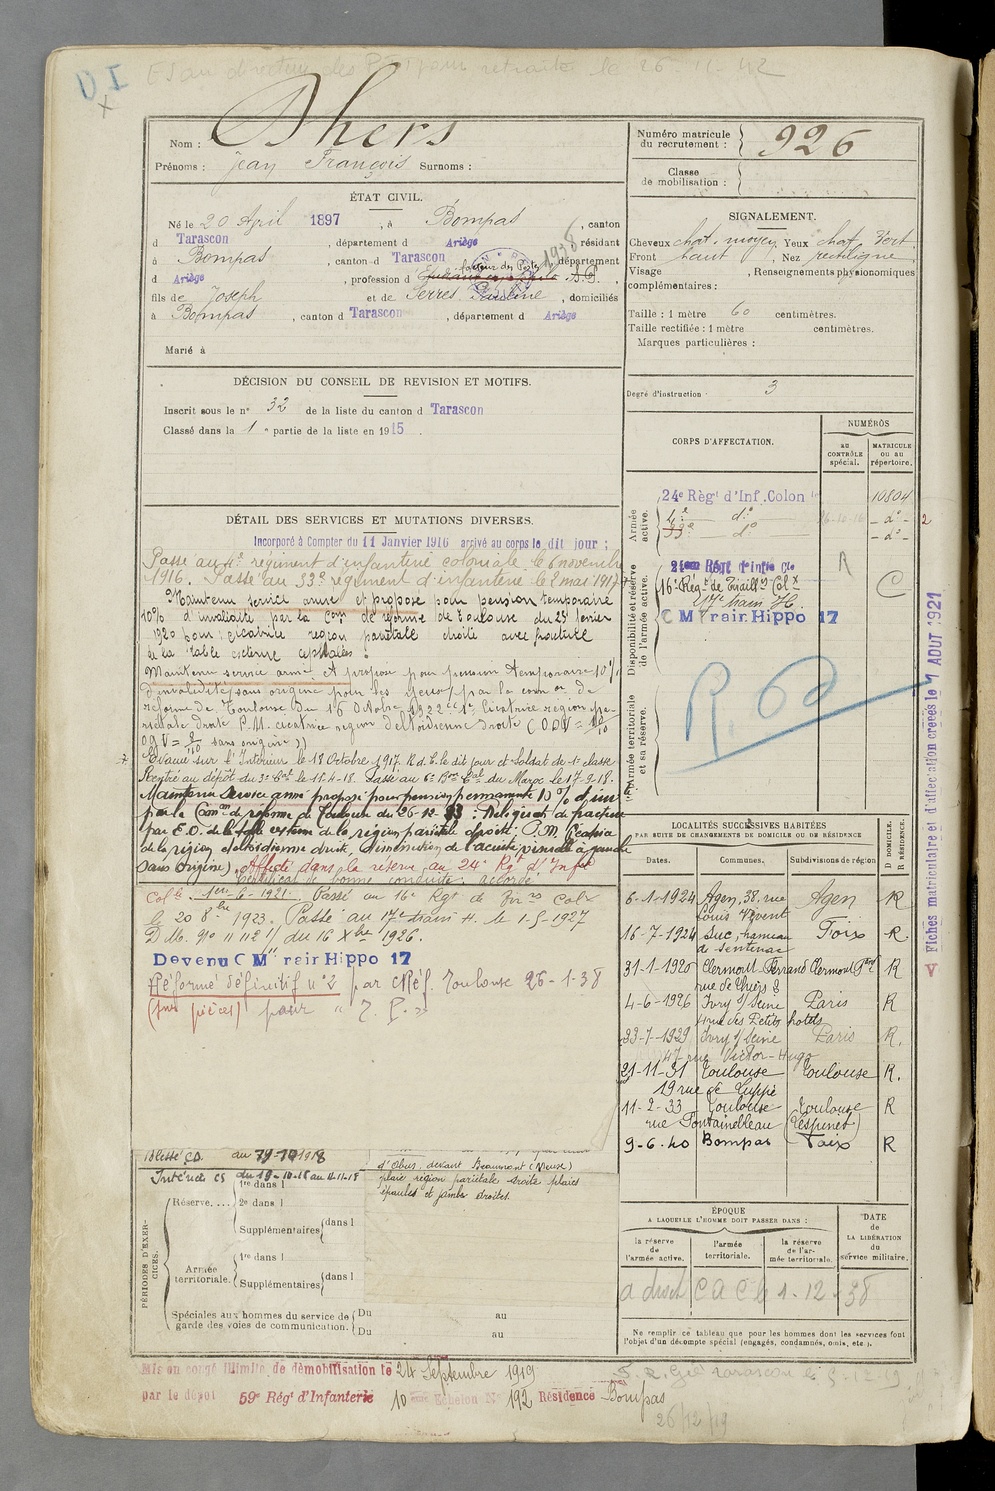 D I
ES au directeur des P pour retraite le 26-11-42
Nom : Dhers
Prénoms : Jean François Surnoms :
Numéro matricule du recrutement : 926
Classe de mobilisation :
ÉTAT CIVIL.
Né le 20 April 1897, à Bompas, canton
d Tarascon, département d Ariège résidant
à Bompas, canton d Tarascon, département
d Ariège, profession d facteur des Postes 1938
fils de Joseph et de Serres Pauline, domiciliés
à Bompas, canton d Tarascon, département d Ariège
Marié à
SIGNALEMENT.
Cheveux chat. moyen Yeux chat. Vert.
Front haut, Nez rectiligne
Visage , Renseignements physionomiques
complémentaires :
Taille : 1 mètre 60 centimètres.
Taille rectifiée : 1 mètre centimètres.
Marques particulières :
Degré d'instruction : 3
DÉCISION DU CONSEIL DE REVISION ET MOTIFS.
Inscrit sous le n° 32 de la liste du canton d Tarascon
Classé dans la 1e partie de la liste en 1915.
CORPS D'AFFECTATION.
NUMÉROS
AU CONTRÔLE spécial.
MATRICULE OU AU répertoire.
Armée active.
24e Règt d'Inf. Colon 10804
4e d° 16-11-16 - d° - 2
33e d° - d° -
Disponibilité et réserve de l'armée active.
24eme Régt d'Infie Cle A
16e Régt de Tiraillrs Colx C
17e train H.
C M Train Hippo 17
Armée territoriale et sa réserve.
R. 60
Fiches matriculaire et d'affectation créées le 1 AOUT 1921
DÉTAIL DES SERVICES ET MUTATIONS DIVERSES.
Incorporé à Compter du 11 Janvier 1916 arrivé au corps le dit jour ;
Passé au 4e régiment d'infanterie coloniale le 6 novembre
1916. Passé au 33e régiment d'infanterie le 2 mai 1917
Maintenu service armé et proposé pour pension temporaire
10% d'invalidité par la Comon de réforme de Toulouse du 25 février
1920 pour : cicatrice région pariétale droite avec fracture
de la table externe
Maintenu service armé et proposé pour pension temporaire 10%
d'invalidité sans origine pour les yeux par la comon de
réforme de Toulouse du 16 Octobre 1922 "1° Cicatrice région pa-
riétale droite P.M. cicatrice région deltoïdienne droite (ODV = 10/10
OgV = 8/10 sans origine))
Evacué sur l'Intérieur le 18 Octobre 1917. R.d.E. le dit jour et Soldat de 1e classe
Rentré au dépôt du 3e Cal le 15-4-18. Passé au 6e Bon Cal du Maroc le 17-9-18.
Maintenu service armé proposé pour pension permanente 10% d'inv
par la Comon de réforme de Toulouse du 26-12-23 : Reliquat de fracture
par E.O. de la table externe de la région pariétale droite. P.M. Cicatrice
de la région deltoïdienne droite, diminution de l'acuité visuelle à gauche
sans origine). Affecté dans la réserve au 24e Rgt d'Infie
Certificat de bonne conduite accordé
Colle 1er-6-1921. Passé au 16e Rgt de Tirrs Colx
le 20 8bre 1923. Passé au 17e train H. le 1-5-1927
D.M. N° "112 1/ du 16 Xbre 1926.
Devenu C M Train Hippo 17
Réformé définitif n° 2 par CRéf. Toulouse 26-1-38
(sur pièces) pour
LOCALITÉS SUCCESSIVES HABITÉES
PAR SUITE DE CHANGEMENTS DE DOMICILE OU DE RÉSIDENCE
Dates. Communes. Subdivisions de région D DOMICILE. R RÉSIDENCE.
6-1-1924 Agen, 38. rue Louis Vivent Agen R
16-7-1924 Suc, hameau de Sentenac Foix R
31-1-1925 Clermont Ferrand Clermont Fnd R
4-6-1926 Ivry s/ Seine Paris R
4 rue des Petits hotels
23-7-1929 Ivry s/ Seine Paris R.
47 rue Victor-Hugo
21-11-31 Toulouse Toulouse R.
19 rue de Cuppé
11-2-33 Toulouse Toulouse R
rue Fontainebleau (Lespinet)
9-6-40 Bompas Foix R
Blessé CD. au 19-10-1918
Intérieur CS du 19-10-18 au 11-11-18
d'Obus, devant Beaumont (Meuse)
plaie région pariétale droite plaies
épaules et jambe droites.
PÉRIODES D'EXERCICES.
Réserve. ... 1re dans l
2e dans l
Supplémentaires dans l
Armée territoriale. 1re dans l
Supplémentaires dans l
Spéciales aux hommes du service de garde des voies de communication. Du au
Du au
ÉPOQUE
A LAQUELLE L'HOMME DOIT PASSER DANS :
la réserve de l'armée active.
l'armée territoriale.
la réserve de l'armée territoriale.
DATE DE LA LIBÉRATION du service militaire.
1-12-38
Ne remplir ce tableau que pour les hommes dont les services font
l'objet d'un décompte spécial (engagés, condamnés, omis, etc.).
Mis en congé illimité de démobilisation le 24 Septembre 1919
par le dépot 59e Régt d'Infanterie 10eme Echelon N° 192 Résidence Bompas
Tarascon le 5-12-19
26/12/19